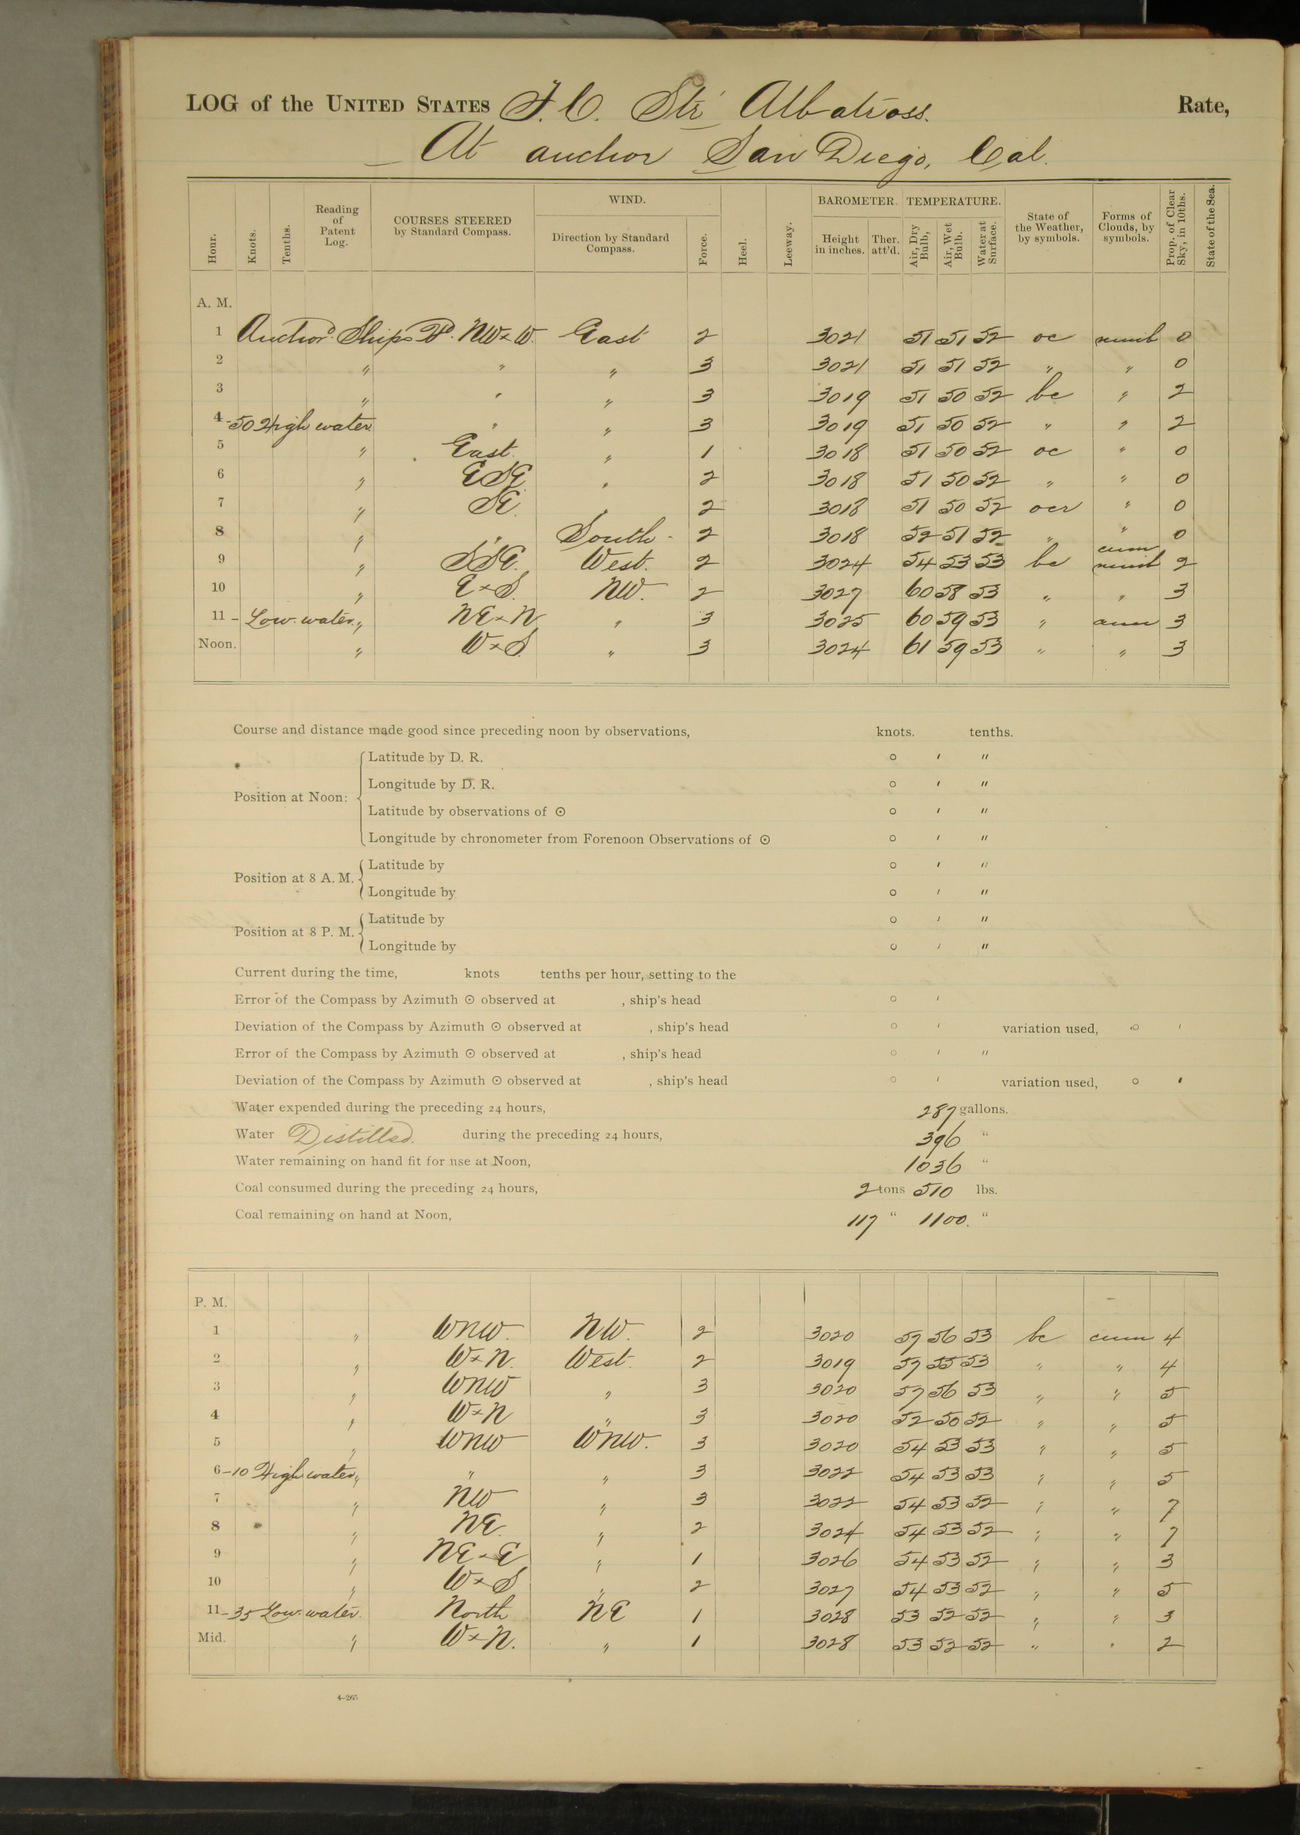 LOG of the UNITED STATES F. C. Str Albatross. Rate,
At anchor San Diego, Cal.
Hour. Knots. Tenths. Reading of Patent Log. COURSES STEERED by Standard Compass. WIND. Direction by Standard Compass. Force. Heel. Leeway. BAROMETER. Height in inches. Ther. att'd. TEMPERATURE. Air, Dry Bulb, Air, Wet Bulb. Water at Surface. State of the Weather, by symbols. Forms of Clouds, by symbols. Prop. of Clear Sky, in 10ths. State of the Sea.
A. M.
1 Anchord. Ships Hd. NW×W. East 2 3021 51 51 52 oc nimb 0
2 " " " 3 3021 51 51 52 " " 0
3 " " " 3 3019 51 50 52 bc " 2
4-50 High water " " 3 3019 51 50 52 " " 2
5 " East. " 1 3018 51 50 52 oc " 0
6 " ESE " 2 3018 51 50 52 " " 0
7 " SE. " 2 3018 51 50 52 ocr " 0
8 " " South 2 3018 52 51 52 " " 0
9 " SSE. West. 2 3024 54 53 53 bc cum nimb 2
10 " E×S. NW. 2 3027 60 58 53 " " 3
11 - Low water " NE×N " 3 3025 60 59 53 " cum 3
Noon. " W×S. " 3 3024 61 59 53 " " 3
Course and distance made good since preceding noon by observations, knots. tenths.
Position at Noon:
Latitude by D. R. ° ′ ″
Longitude by D. R. ° ′ ″
Latitude by observations of ☉ ° ′ ″
Longitude by chronometer from Forenoon Observations of ☉ ° ′ ″
Position at 8 A. M.
Latitude by ° ′ ″
Longitude by ° ′ ″
Position at 8 P. M.
Latitude by ° ′ ″
Longitude by ° ′ ″
Current during the time, knots tenths per hour, setting to the
Error of the Compass by Azimuth ☉ observed at , ship's head ° ′
Deviation of the Compass by Azimuth ☉ observed at , ship's head ° ′ variation used, ° ′
Error of the Compass by Azimuth ☉ observed at , ship's head ° ′ ″
Deviation of the Compass by Azimuth ☉ observed at , ship's head ° ′ variation used, ° ′
Water expended during the preceding 24 hours, 287 gallons.
Water Distilled. during the preceding 24 hours, 396 "
Water remaining on hand fit for use at Noon, 1036 "
Coal consumed during the preceding 24 hours, 2 tons 510 lbs.
Coal remaining on hand at Noon, 117 " 1100. "
P. M.
1 " WNW. NW. 2 3020 57 56 53 bc cum 4
2 " W×N. West. 2 3019 57 55 53 " " 4
3 " WNW " 3 3020 57 56 53 " " 5
4 " W×N " 3 3020 52 50 52 " " 5
5 " WNW WNW. 3 3020 54 53 53 " " 5
6-10 High water " " " 3 3022 54 53 53 " " 5
7 " NW " 3 3022 54 53 52 " " 7
8 " NE. " 2 3024 54 53 52 " " 7
9 " NE×E " 1 3026 54 53 52 " " 3
10 " W×S " 2 3027 54 53 52 " " 5
11-35 Low water. North NE 1 3028 53 52 52 " " 3
Mid. " W×N. " 1 3028 53 52 52 " " 2
4-265